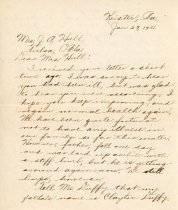 Kreuter, Tex
Jan 29, 1931
Mrs. J. A. Hill
Tulsa, Okla.
Dear Mrs. Hill:
I received your letter a short
time ago. I was sorry to hear
you had been ill, but was glad
to hear you were improving. I
hope you keep improving, and
regain normal health again.
We have been quite fortunate
not to have any illness in
our family so far this winter.
However father, fell one day
and was laid up awhile with
a stiff limb, but he is getting
around again now. He still
limps, however.
Tell Mr. Duffy that my
father's name is Clayton Duffy.